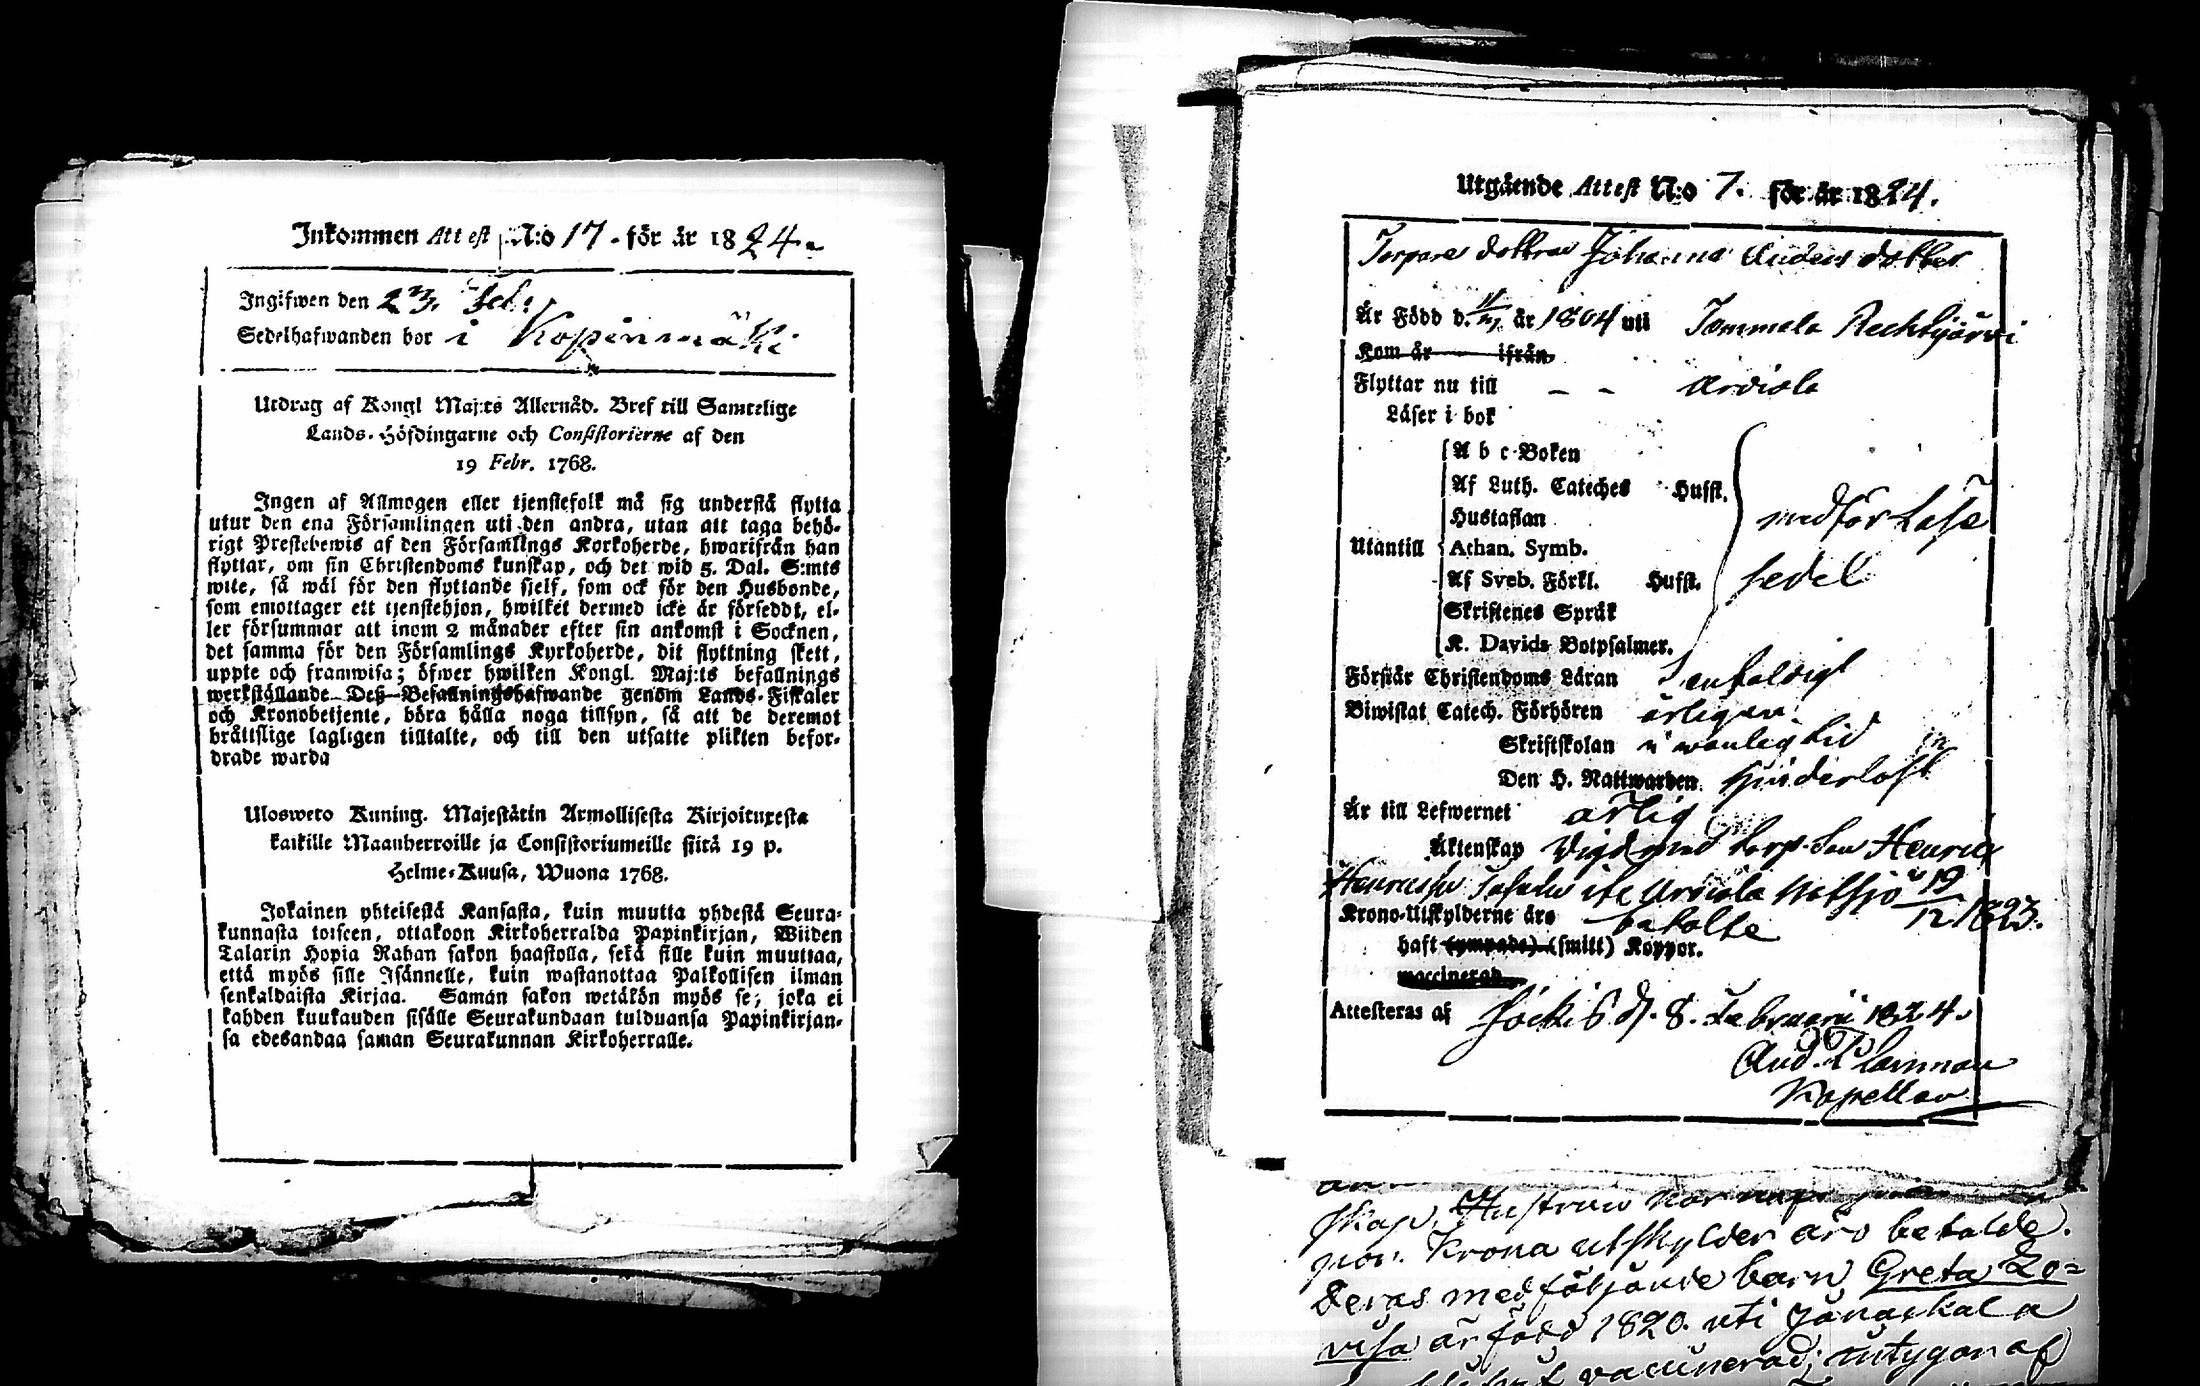 Inkommen Attest N:o 17. för år 1824.
Ingifwen den 23. Feb:
Sedelhafwanden bor i Kopinmäki
Utdrag af Kongl Maj:ts Allernåd. Bref till Samtelige
Lands-Höfdingarne och Consistorierne af den
19 Febr. 1768.
Ingen af Allmogen eller tjenstefolk må sig understå flytta
utur den ena Församlingen uti den andra, utan att taga behö-
rigt Prestebewis af den Församlings Kyrkoherde, hwarifrån han
flyttar, om sin Christendoms kunskap, och det wid 5. Dal. S:mts
wite, så wäl för den flyttande sjelf, som ock för den Husbonde,
som emottager ett tjenstehjon, hwilket dermed icke är försedt, el-
ler försummar att inom 2 månader efter sin ankomst i Socknen,
det samma för den Församlings Kyrkoherde, dit flyttning skett,
uppte och framwisa; öfwer hwilken Kongl. Maj:ts befallnings
werkställande Deß Befallningshafwande genom Lands-Fiskaler
och Kronobetjente, böra hålla noga tillsyn, så att de deremot
bråttslige lagligen tilltalte, och till den utsatte plikten befor-
drade warda
Ulosweto Kuning. Majestätin Armollisesta Kirjoituxesta
kaikille Maanherroille ja Consistoriumeille siitä 19 p.
Helme-Kuusa, Wuona 1768.
Jokainen yhteisestä Kansasta, kuin muutta yhdestä Seura-
kunnasta toiseen, ottakoon Kirkoherralda Papinkirjan, Wiiden
Talarin Hopia Rahan sakon haastolla, sekä sille kuin muuttaa,
että myös sille Isännelle, kuin wastanottaa Palkollisen ilman
senkaldaista Kirjaa. Saman sakon wetäkön myös se, joka ei
kahden kuukauden sisälle Seurakundaan tulduansa Papinkirjan-
sa edesandaa saman Seurakunnan Kirkoherralle.
Utgående Attest N:o 7. för år 1824.
Torpare dottren Johanna Anders dotter
Är Född d. år 1804 uti Tammela Rechtijärvi
Kom år ifrån
Flyttar nu till - - Arviola
Läser i bok
A b c-Boken
Af Luth. Cateches Husst.
Hustaflan
Utantill Athan. Symb.
Af Sveb. Förkl. Husst.
Skriftenes Språk
K. Davids Botpsalmer.
medför Läse
sedel
Förstår Christendoms Läran enfaldigt
Biwistat Catech. Förhören årligen
Skriftskolan i wanlig tid
Den H. Nattwarden hinderlöst
Är till Lefwernet ärlig
Äktenskap Vigd med torp. Son Henric
Henricsson ifr Arviola 19/12 1823.
Krono-Utskylderne äro betalte
haft (ympade) (smitt) Koppor.
vaccinerad
Attesteras af Jockis d. 8. Februarii 1824.
And. Planman
Kapellan
skap, Hustrun har
por. Krono utskylder äro betalde.
Deras medföljande barn Greta Lo-
visa är född 1820. uti Janackala
vaccinerad; intygar af